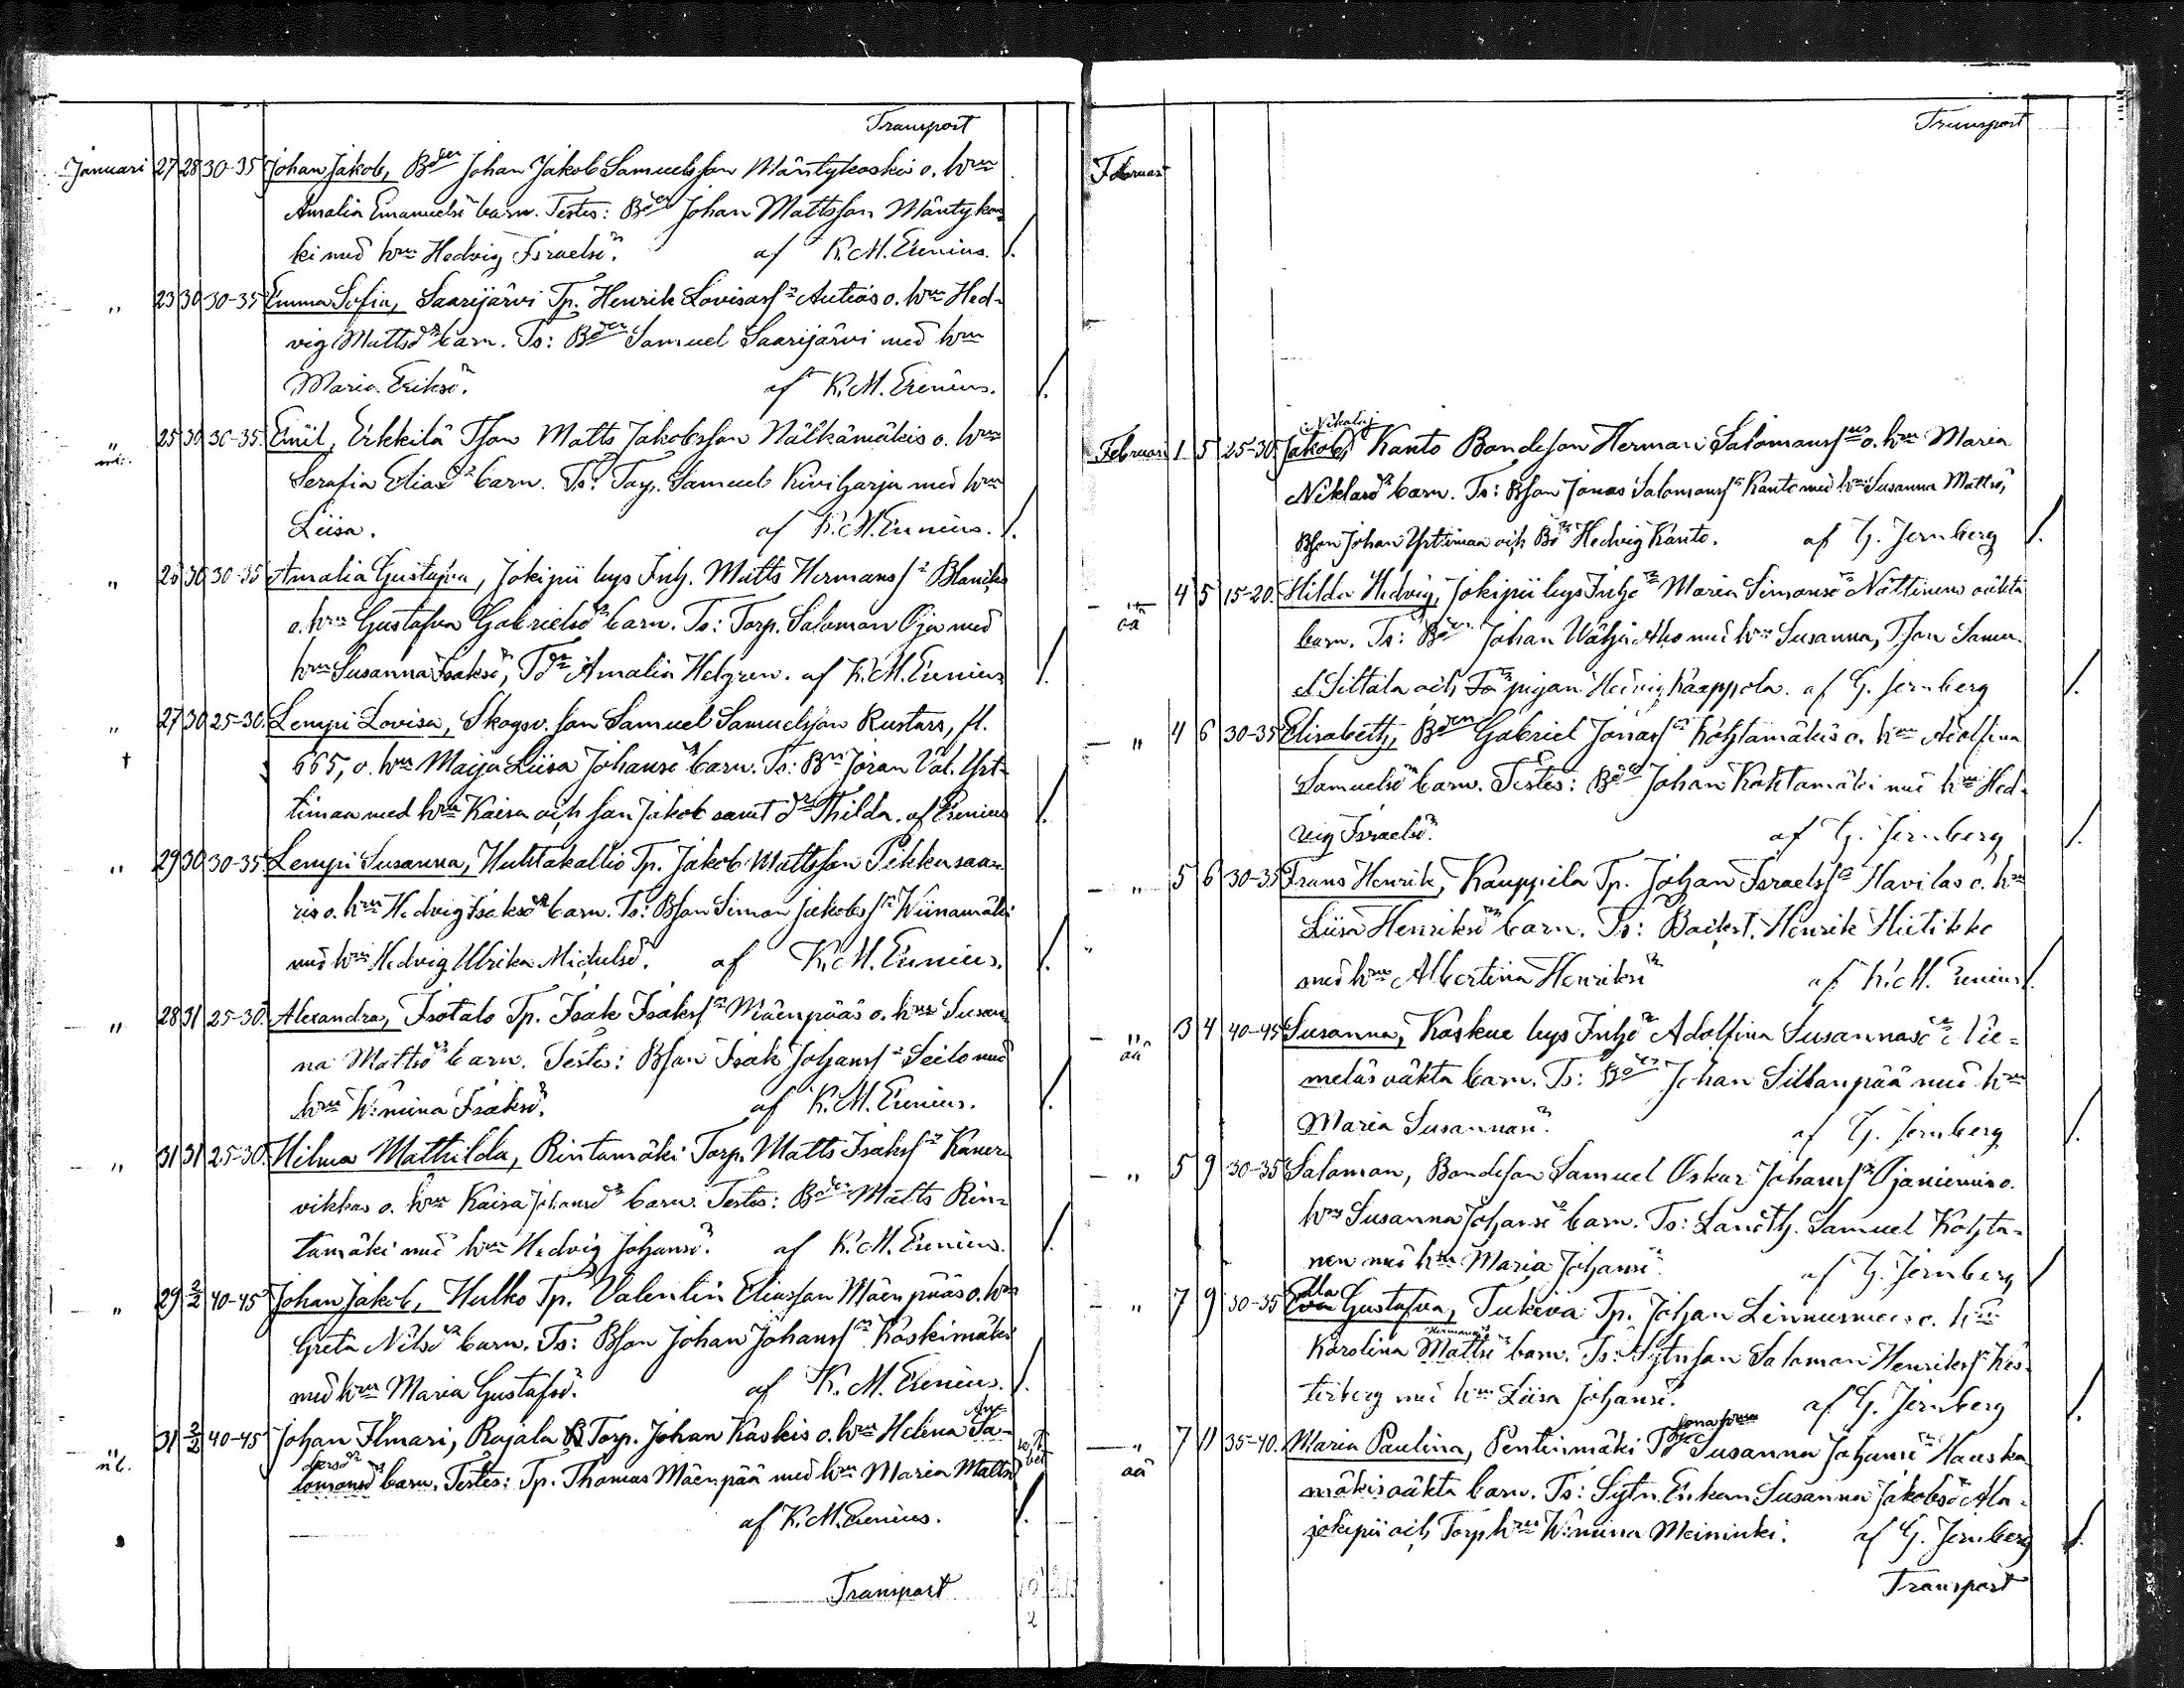 Transport
Januari 27 28 30-35 Johan Jakob, Bden Johan Jakob Samuelsson Mäntykoskis o. hru
Amalia Emanuelsdr barn. Testes: Bden Johan Mattsson Mäntykos-
ki med hru Hedvig Israelsdr. af K. M. Erenius. /.
" 23 30 30-35 Emma Sofia, Saarijärvi Tp. Henrik Lovisasn Autios o. hru Hed-
vig Mattsdr barn. Ts: Bden Samuel Saarijärvi med hru
Maria Eriksdr. af K. M. Erenius. /.
" 25 30 30-35. Emil, Erkkilä Tson Matts Jakobsson Nälkämäkis o. hru
Serafia Eliasdr barn. Ts: Torp. Samuel Kiviharju med hru
Liisa. af K. M. Erenius. /.
" 25 30 30-35 Amalia Gustafva, Jokipii lys Inh. Matts Hermanss
o. hru Gustafva Gabrielsdr barn. Ts: Torp. Saloman Oja med
hru Susanna Isaksdr, Tdr Amalia Helgren. af K. M. Erenius /.
" 27 30 25-30. Lempi Lovisa, Skogsv. son Samuel Samuelsson Rustars, fl.
† 665, o. hru Maija Liisa Johansdr barn. Ts: Bn Joran Väl. Yrt-
timaa med hru Kaisa och son Jakob samt dr Thilda. af Erenius /.
" 29 30 30-35 Lempi Susanna, Huhtakallio Tp. Jakob Mattsson Pikkusaa-
ris o. hru Hedvig Isaksdr barn. Ts: Bson Simon Jakobsn Wiinamäki
med hru Hedvig Ulrika Michelsdr. af K. M. Erenius. /.
" 28 31 25-30. Alexandra, Isotalo Tp. Isak Isaksn Mäenpääs o. hru Susan-
na Mattsdr barn. Testes: Bson Isak Johanss Seilo med
hru W:mina Isaksdr. af K. M. Erenius. /.
" 31 31 25-30. Hilma Mathilda, Rintamäki Torp. Matts Isaksn Kaner-
vikkos o. hru Kaisa Johansdr barn. Testes: Bden Matts Rin-
tamäki med hru Hedvig Johansdr. af K. M. Erenius. /.
" 29 2/2 40-45 Johan Jakob, Hulko Tp. Valentin Eliasson Mäenpääs o. hru
Greta Nilsdr barn. Ts: Bson Johan Johanss Koskimäki
med hru Maria Gustafsdr. af K. M. Erenius. /.
" 31 2/2 40-45 Johan Ilmari, Rajala Torp. Johan Kaskis o. hru Helena Sa-
lomonsdr barn. Testes: Tp. Thomas Mäenpää med hru Maria Mattsdr
af K. M. Erenius. /.
Transport
Transport
Februari
Nikolaj
Februari 1 5 25-30. Jakob, Kanto Bondeson Herman Salomonss o. hru Maria
Niklasdr barn. Ts: Bson Jonas Salomonss Kanto med hru Susanna Mattsdr,
Bson Johan Yrttimaa och Bdr Hedvig Kanto. af G. Jernberg /.
" oä 4 5 15-20. Hilda Hedvig, Jokipii lys Inhdr Maria Simonsdr Nättinens oäkta
barn. Ts: Bden Johan Wähä Aho med hru Susanna, Tson Samu-
el Siltala och pigan Hedvig Kaappola. af G. Jernberg /.
" 4 6 30-35 Elisabeth, Bden Gabriel Jonass Kohtamäkis o. hru Adolfina
Samuelsdr barn. Testes: Bden Johan Kohtamäki med hru Hed-
vig Israelsdr. af G. Jernberg /.
" 5 6 30-35 Frans Henrik, Kauppila Tp. Johan Israelss Havilas o. hru
Liisa Henriksdr barn. Ts: Backst. Henrik Hietikko
med hru Albertina Henriksdr af K. M. Erenius /.
" oä 3 4 40-45 Susanna, Koskue lys Inhdr Adolfina Susannasdr Vie-
meläs oäkta barn. Ts: Bden Johan Sillanpää med hru
Maria Susannasdr. af G. Jernberg /.
" 5 9 30-35 Saloman, Bondeson Samuel Oskar Johanss Ojaniemis o.
hru Susanna Johansdr barn. Ts: Landth. Samuel Kohta-
nen med hru Maria Johansdr. af G. Jernberg /
" 7 9 30-35 Gustafva, Tukeva Tp. Johan Linnusmees o. hru
Karolina Mattsdr barn. Ts: Sytnson Saloman Henrikss Kes-
terberg med hru Liisa Johansdr. af G. Jernberg /.
" oä 7 11 35-40. Maria Paulina, Pentinmäki Susanna Johansdr Hauska-
mäkis oäkta barn. Ts: Sytn. Enkan Susanna Jakobsdr Ala-
jokipii och Torp hru W:mina Meininki. af G. Jernberg /.
Transport